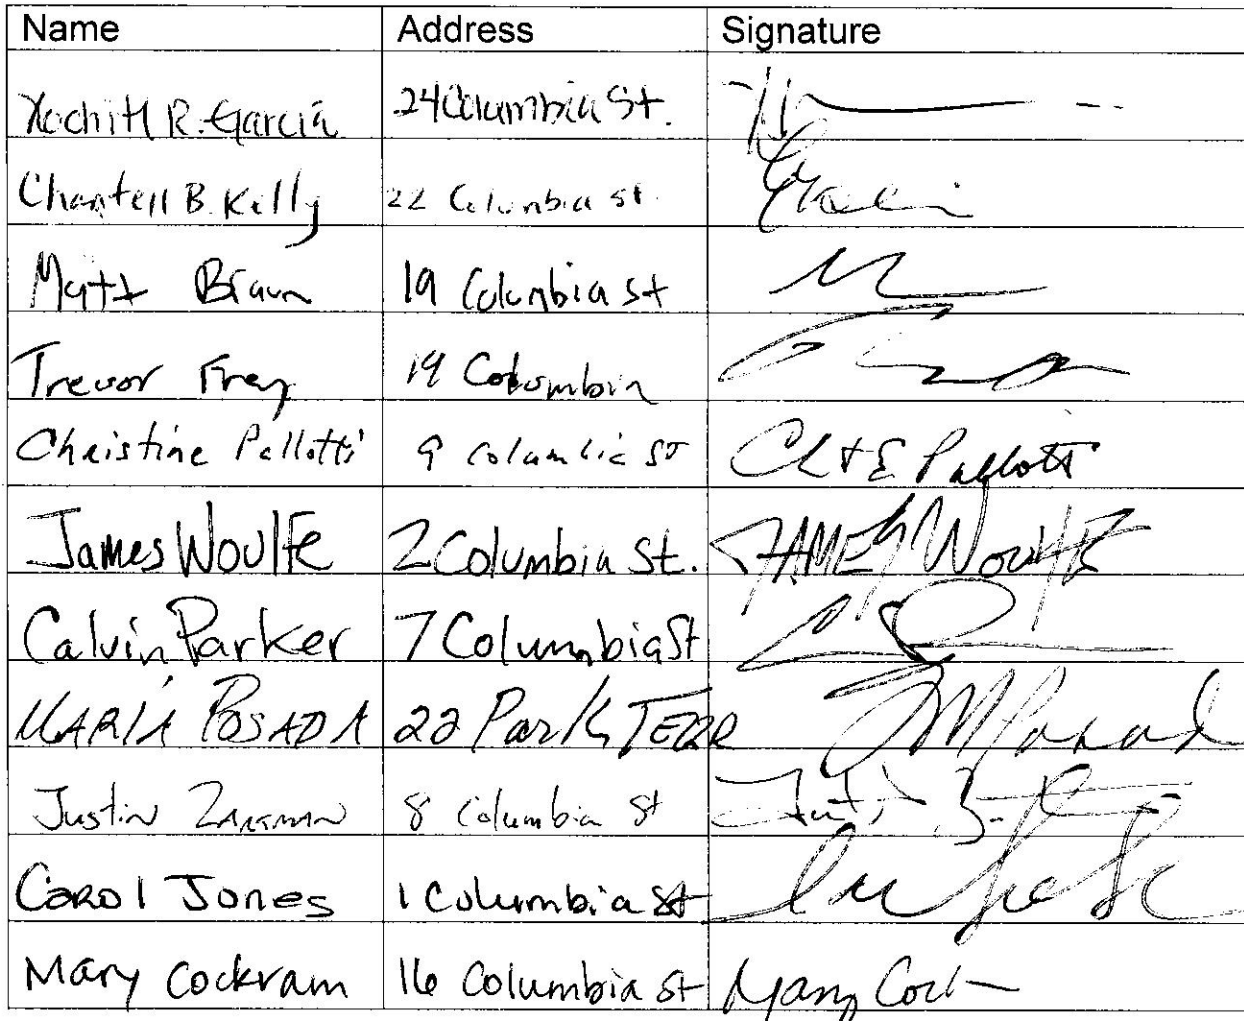 Name Address Signature
Xochitl R. Garcia 24 Columbia St.
Chantell B. Kelly 22 Columbia St.
Matt Braun 19 Columbia St
Trevor Frey 19 Columbia
Christine Pallotti 9 Columbia ST Pallotti
James Woulfe 2 Columbia St. JAMES Woulfe
Calvin Parker 7 Columbia St
MARIA POSADA 22 Park TERR
Justin 8 Columbia St
Carol Jones 1 Columbia St
Mary Cockram 16 Columbia St Mary